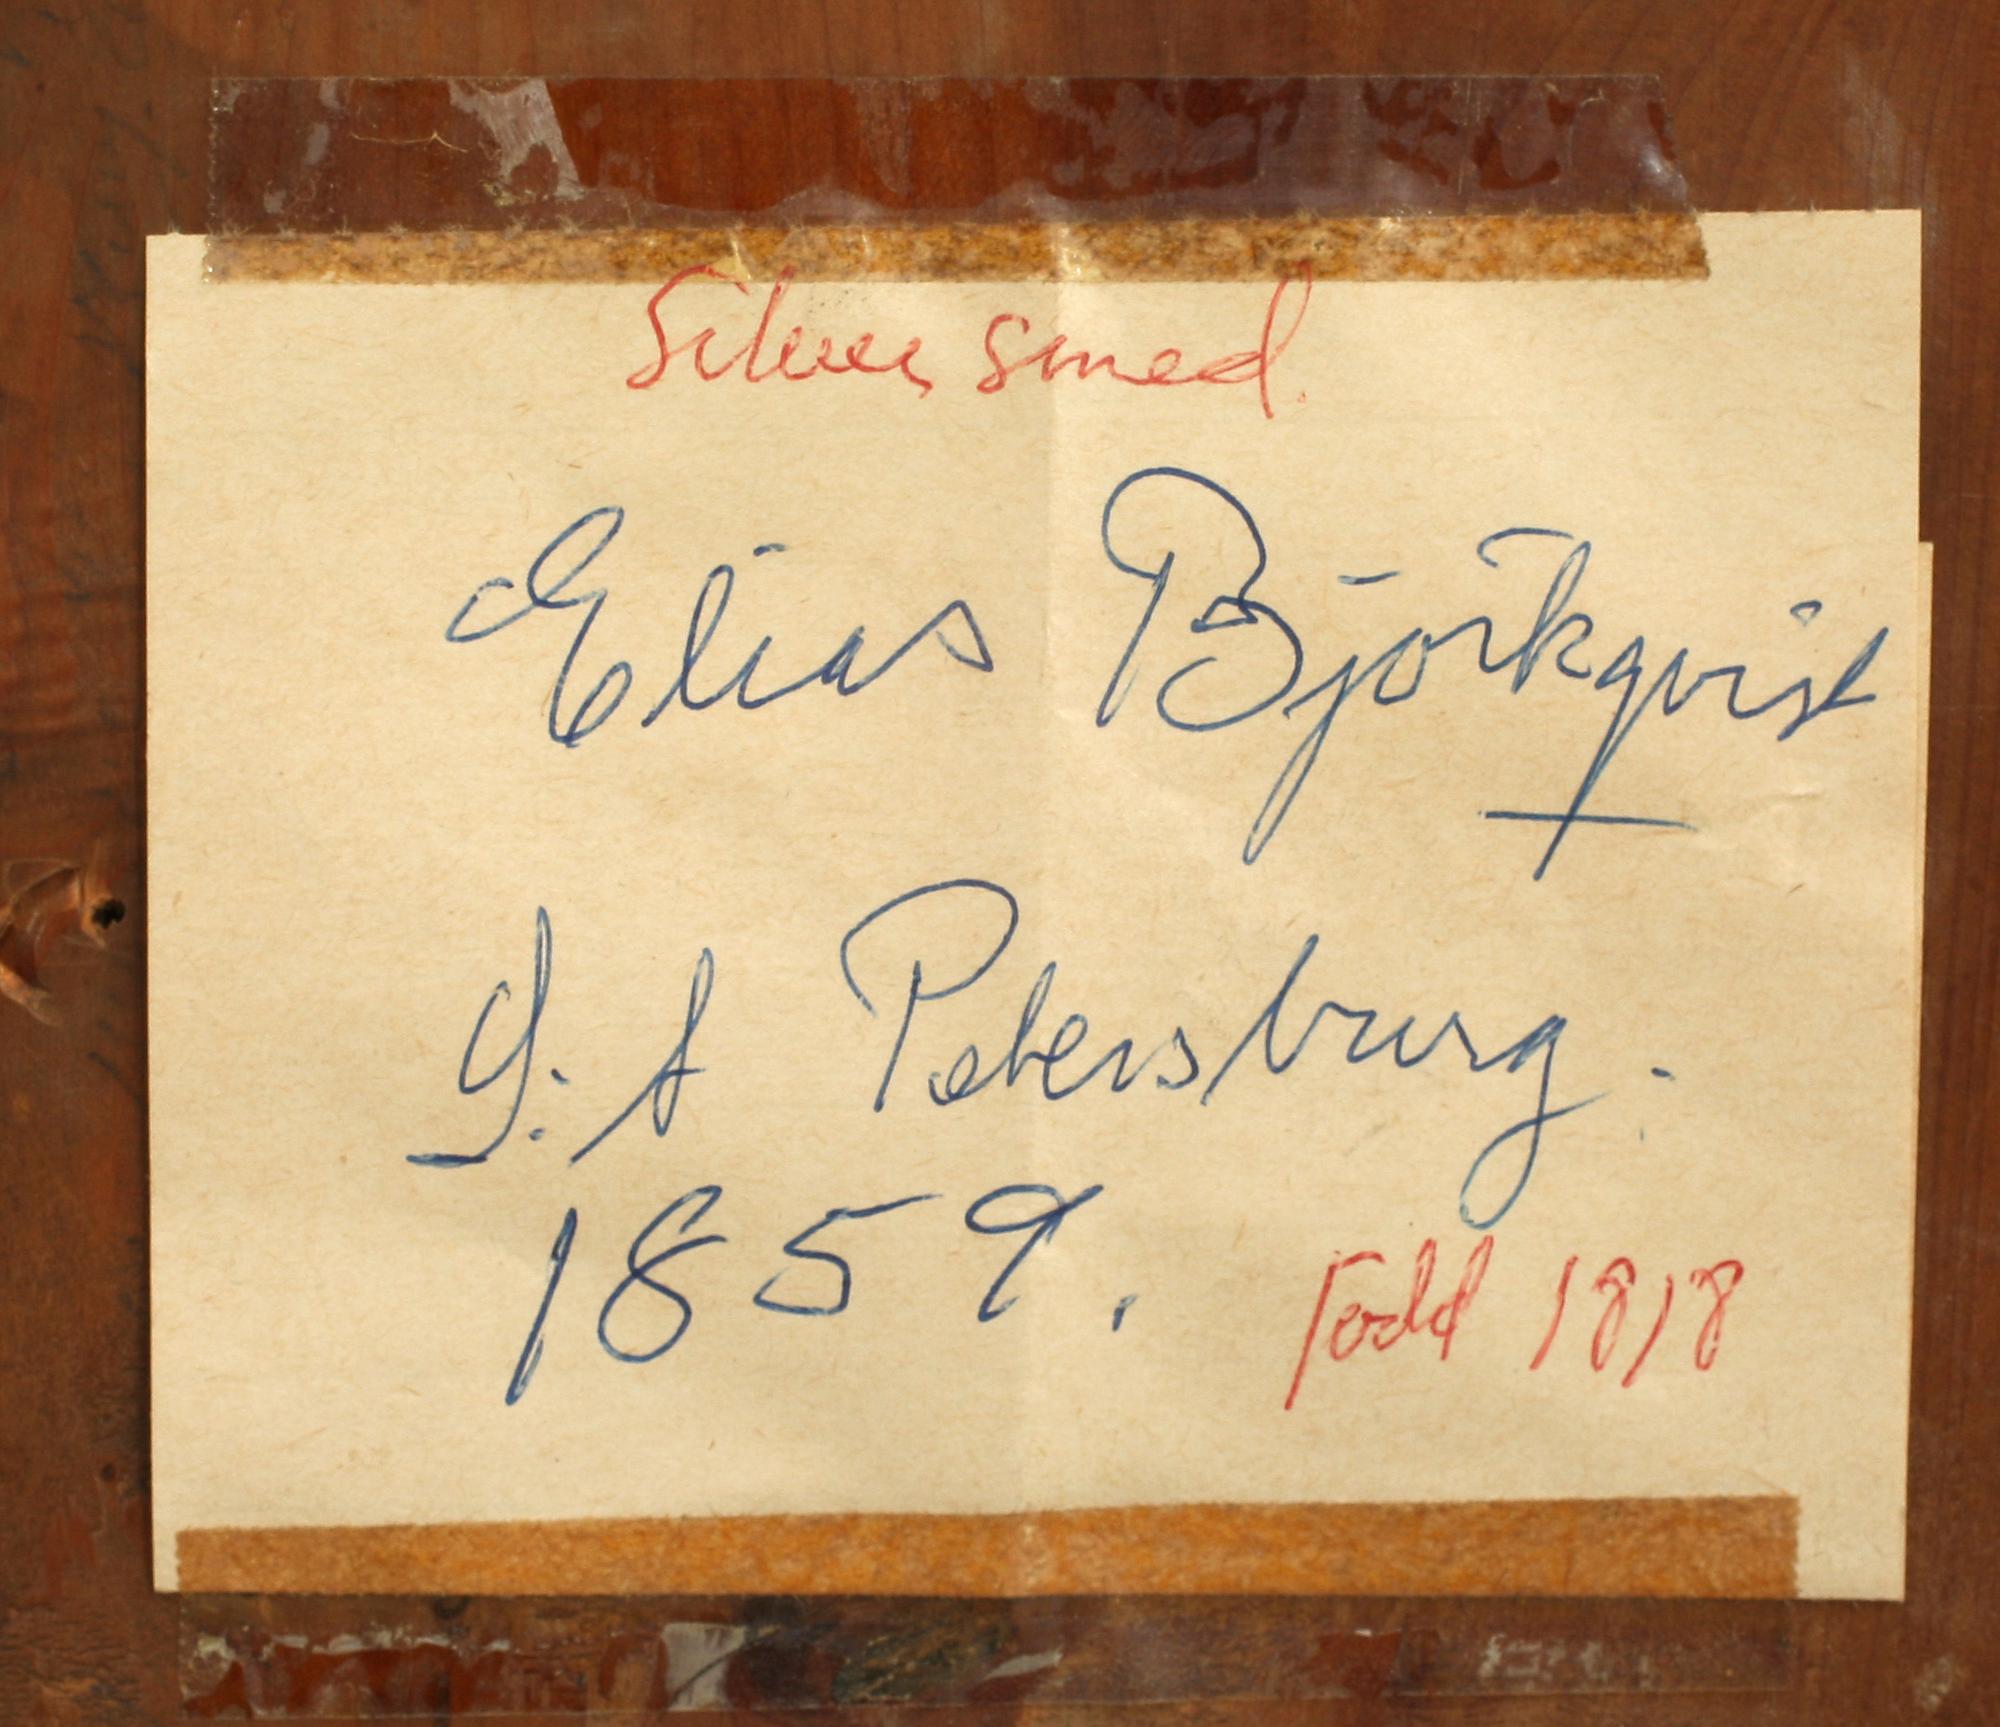 Silversmed.
Elias Björkqvist
S:t Petersburg.
1859.
Född 1818